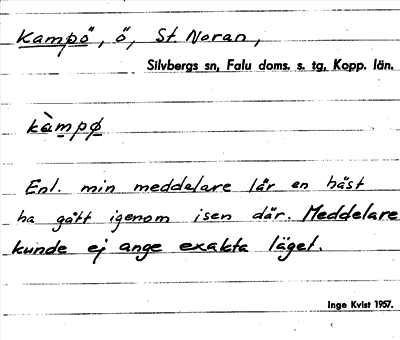 Kampö, ö, St. Noran,
Silvbergs sn, Falu doms. s. tg, Kopp. län.
kàmpø
Enl. min meddelare lär en häst
ha gått igenom isen där. Meddelare
kunde ej ange exakta läget.
Inge Kvist 1957.